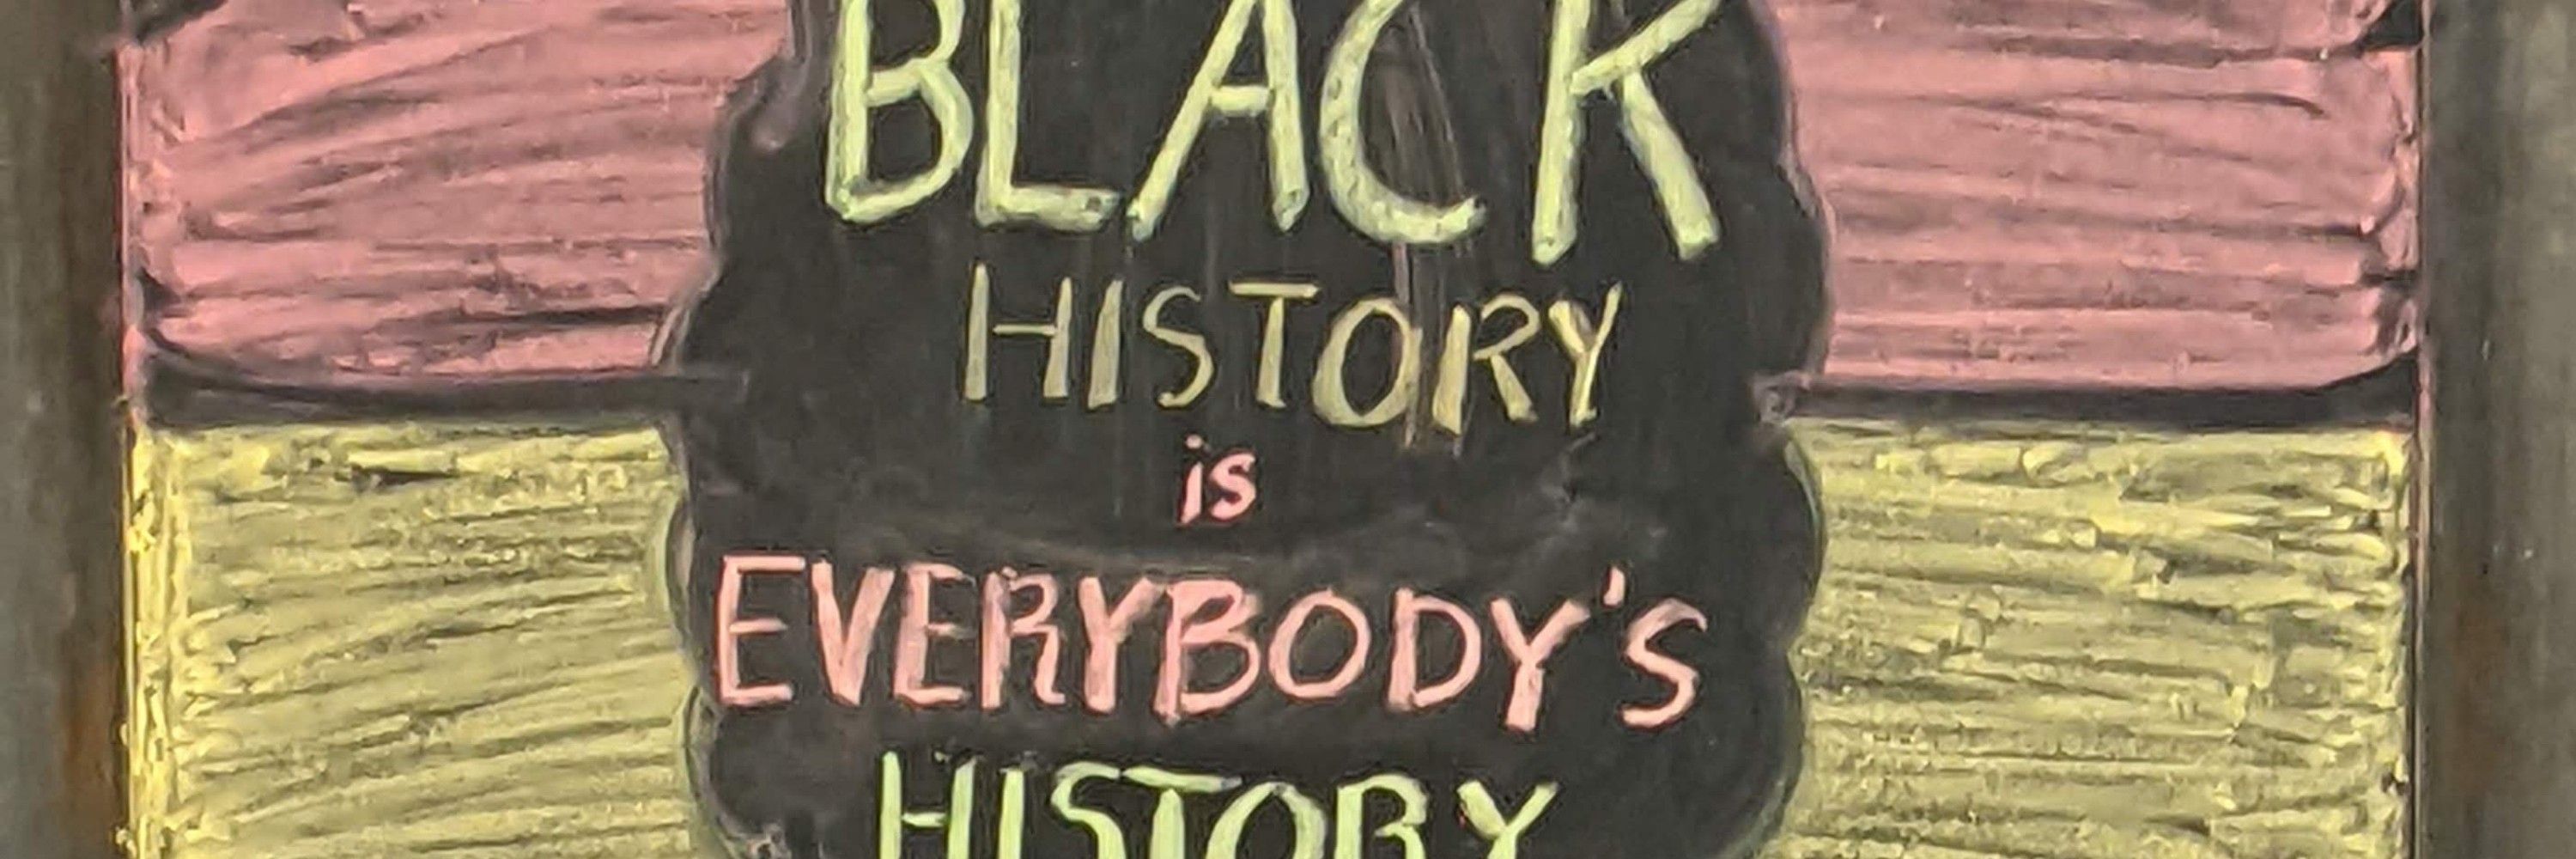 BLACK
HISTORY
is
EVERYBODY'S
HISTORY